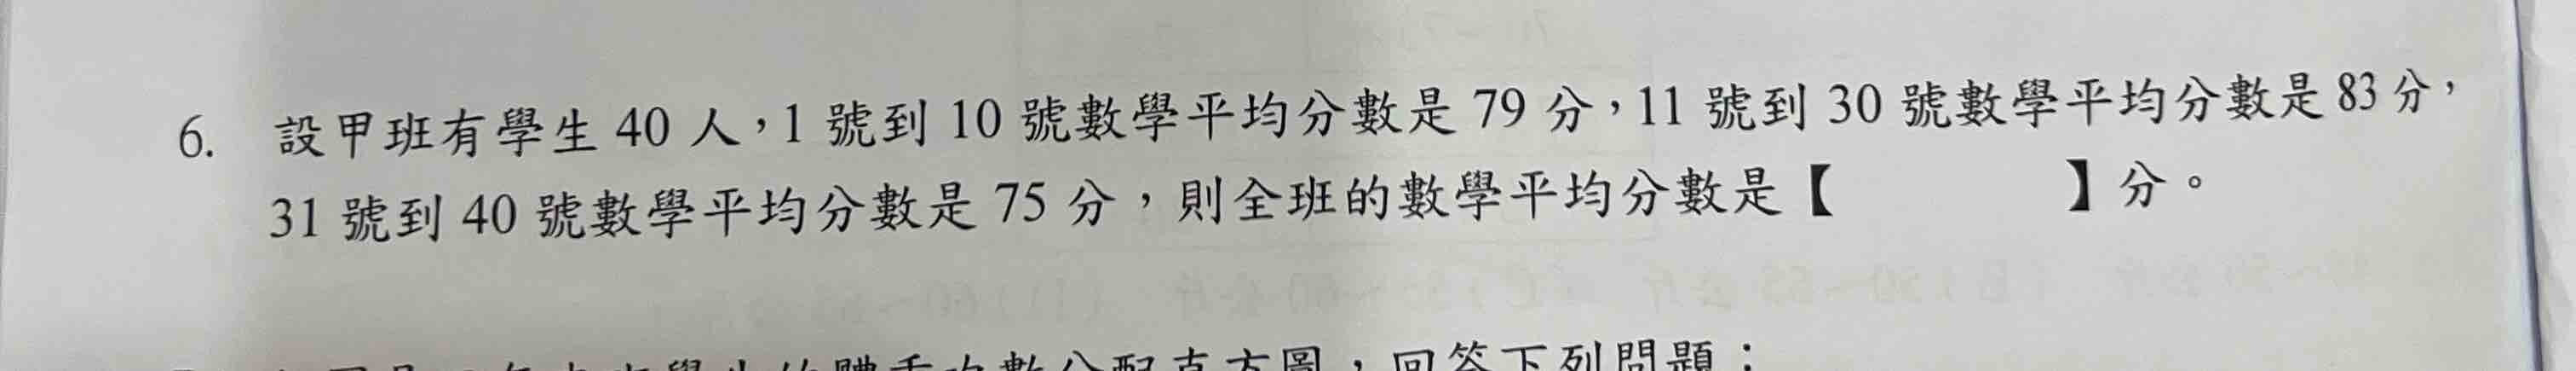 6. 設甲班有學生 40 人，1 號到 10 號數學平均分數是 79 分，11 號到 30 號數學平均分數是 83 分，
31 號到 40 號數學平均分數是 75 分，則全班的數學平均分數是【 】分。
體重次數分配直方圖，回答下列問題：